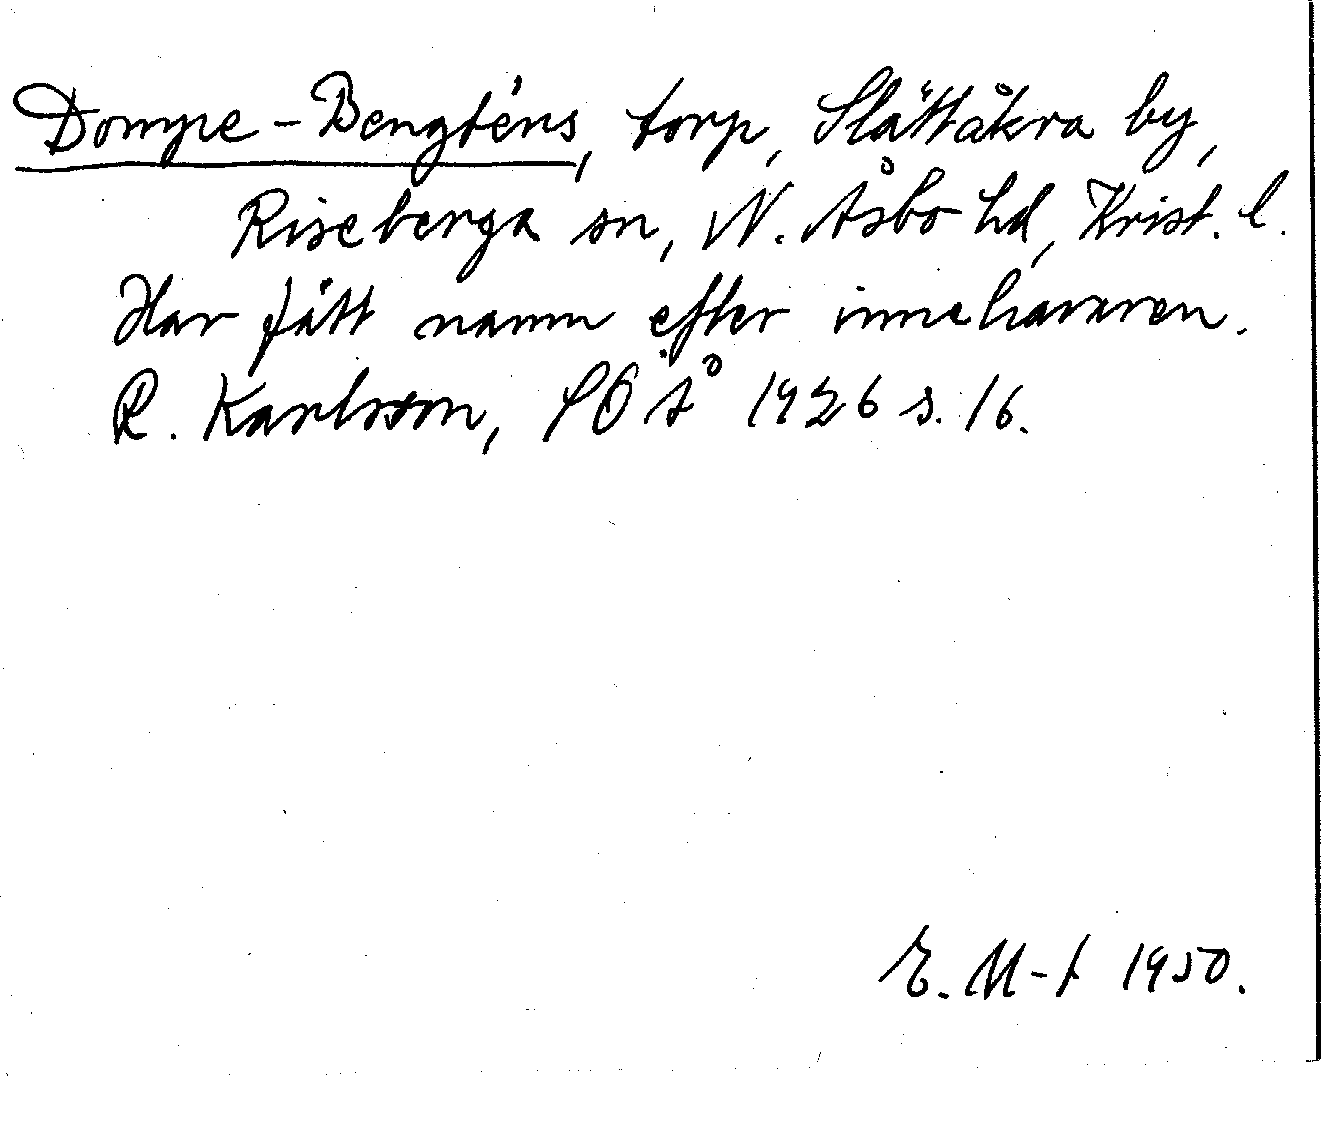 Dompe-Bengténs, torp, Slättåkra by,
Riseberga sn, N. Åsbo hd, Krist. l.
Har fått namn efter innehavaren.
R. Karlsson, SOÅ 1926 s. 16.
E. M-t 1950.